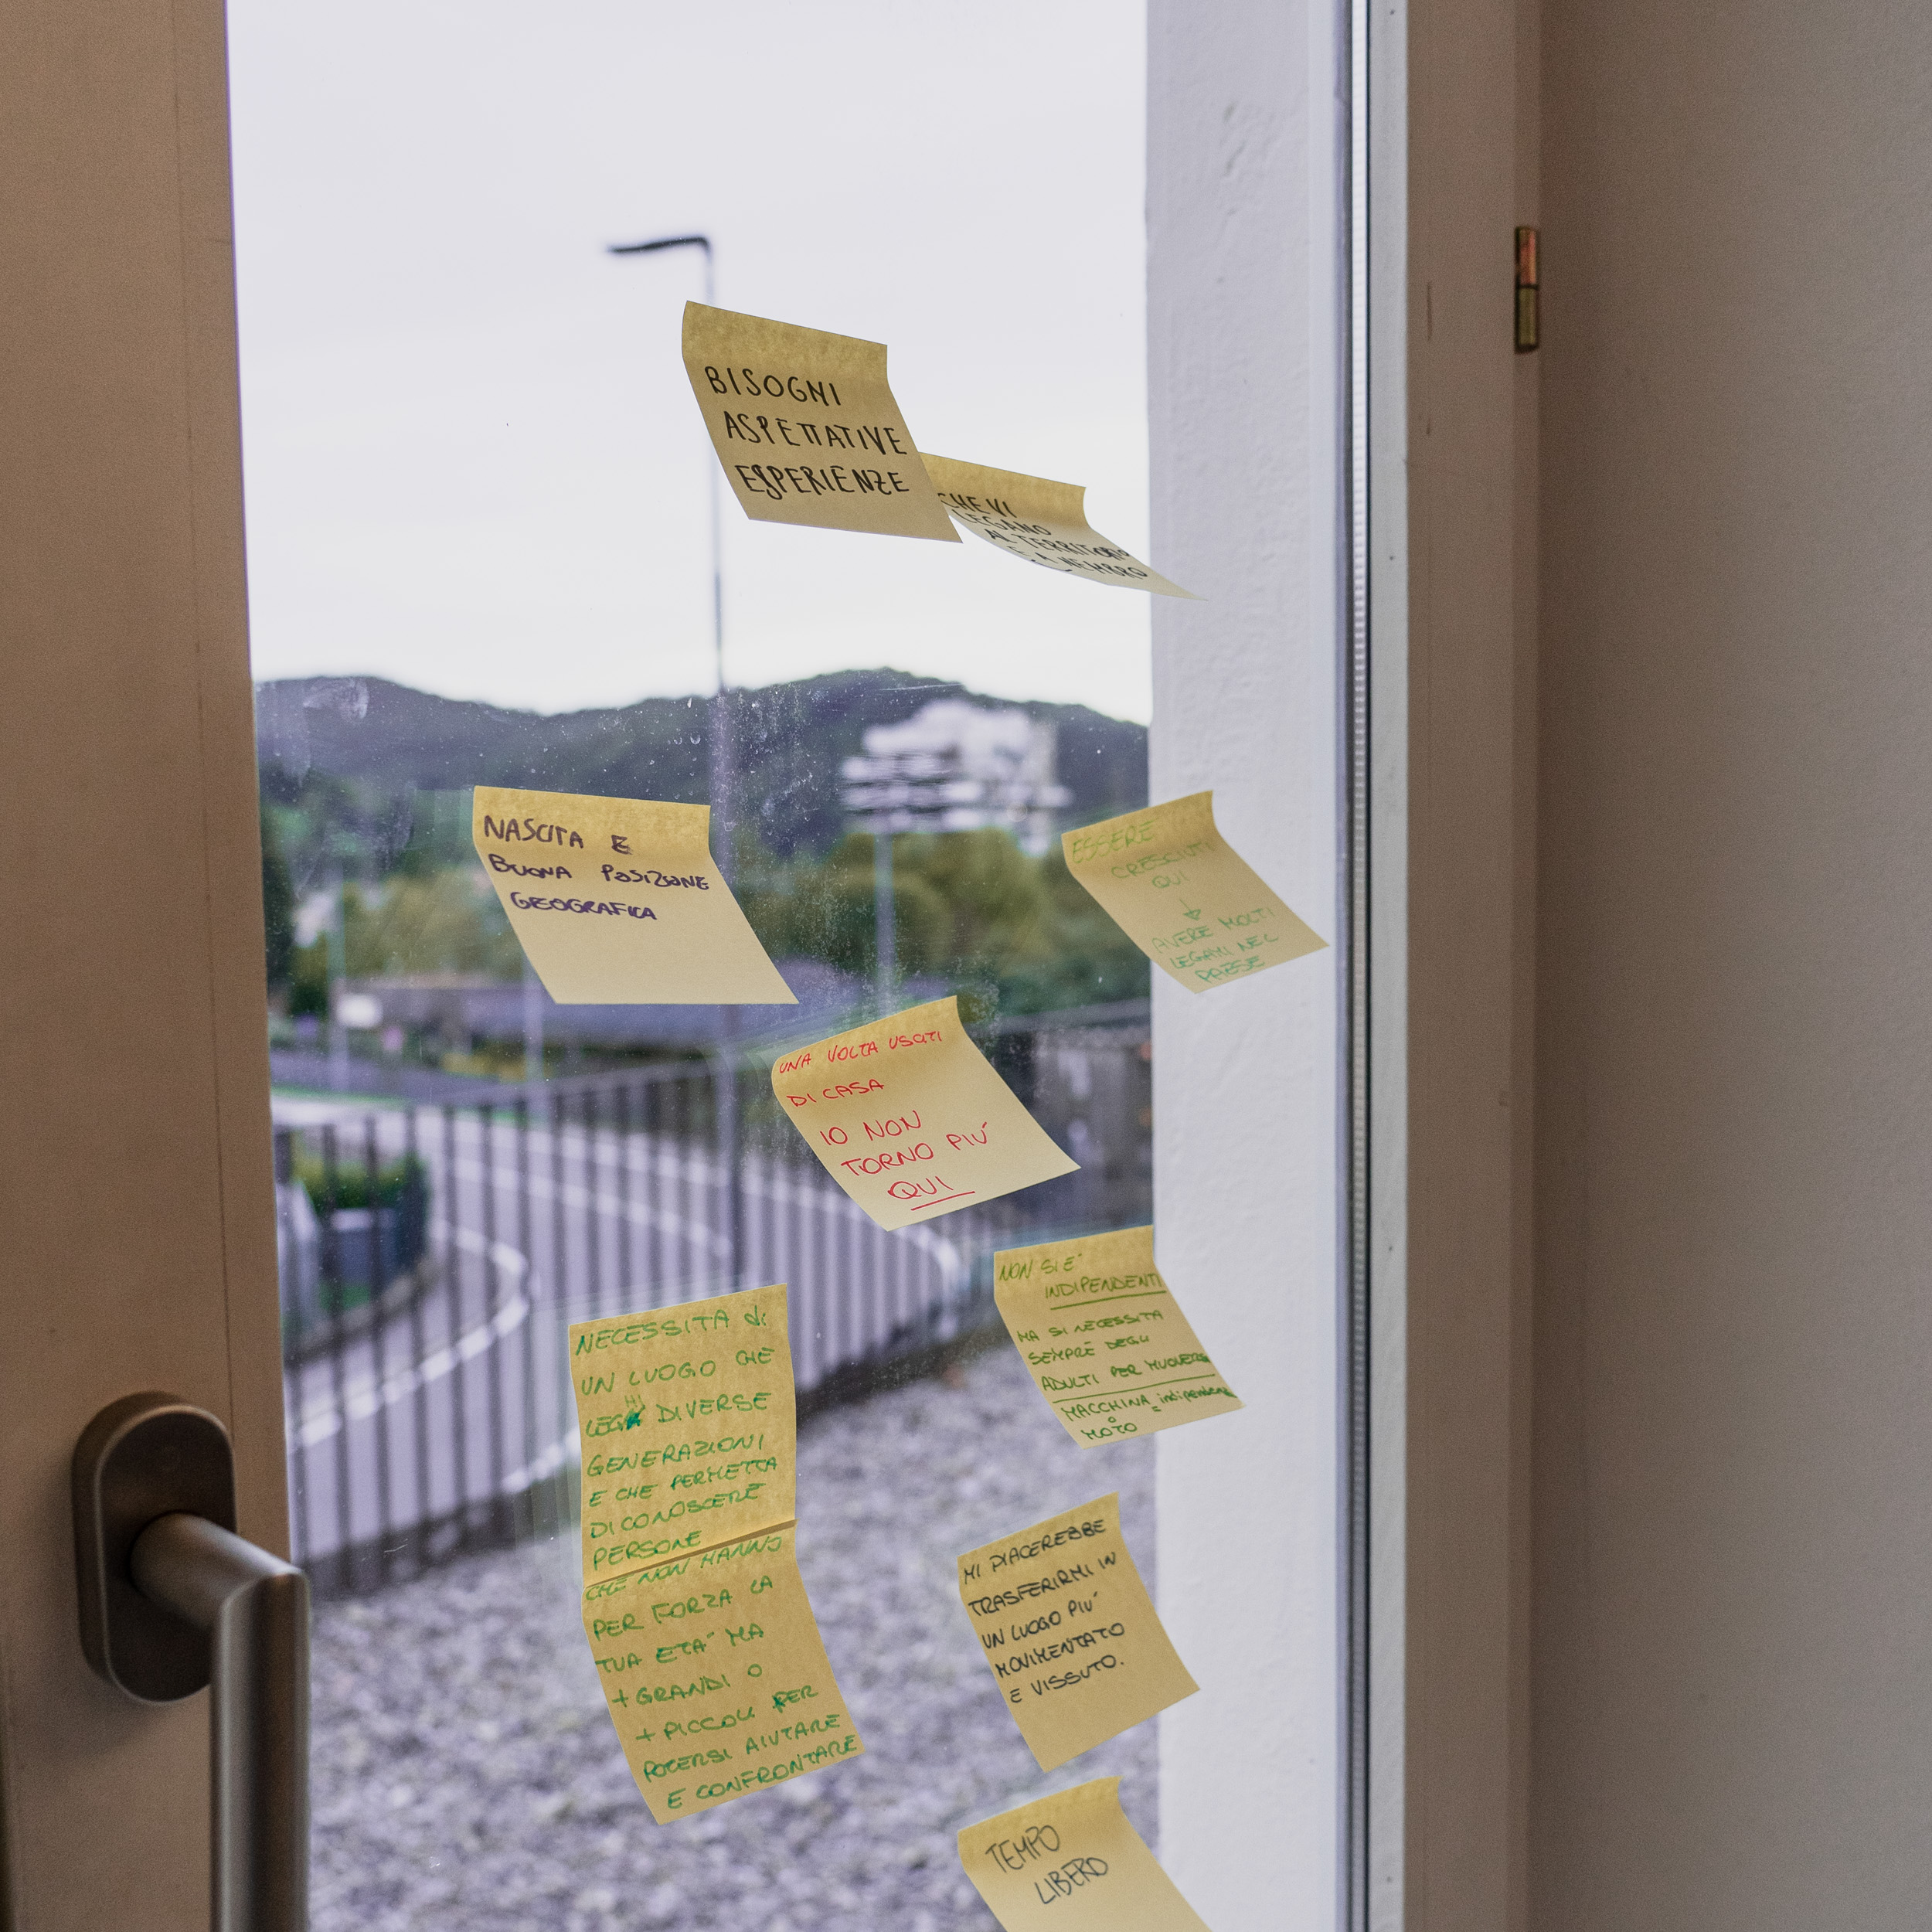 BISOGNI
ASPETTATIVE
ESPERIENZE
CHE VI
LEGANO
AL TERRITORIO
E A NEMBRO
NASCITA E
BUONA POSIZIONE
GEOGRAFICA
ESSERE
CRESCIUTI
QUI
↓
AVERE MOLTI
LEGAMI NEL
PAESE
UNA VOLTA USCITI
DI CASA
IO NON
TORNO PIU'
QUI
NON SI E'
INDIPENDENTI
MA SI NECESSITA
SEMPRE DEGLI
ADULTI PER MUOVERSI
MACCHINA = indipendenza
O
MOTO
NECESSITA di
UN LUOGO CHE
LEGHI DIVERSE
GENERAZIONI
E CHE PERMETTA
DI CONOSCERE
PERSONE
CHE NON HANNO
PER FORZA LA
TUA ETA' MA
+ GRANDI O
+ PICCOLI PER
POTERSI AIUTARE
E CONFRONTARE
MI PIACEREBBE
TRASFERIRMI IN
UN LUOGO PIU'
MOVIMENTATO
E VISSUTO.
TEMPO
LIBERO